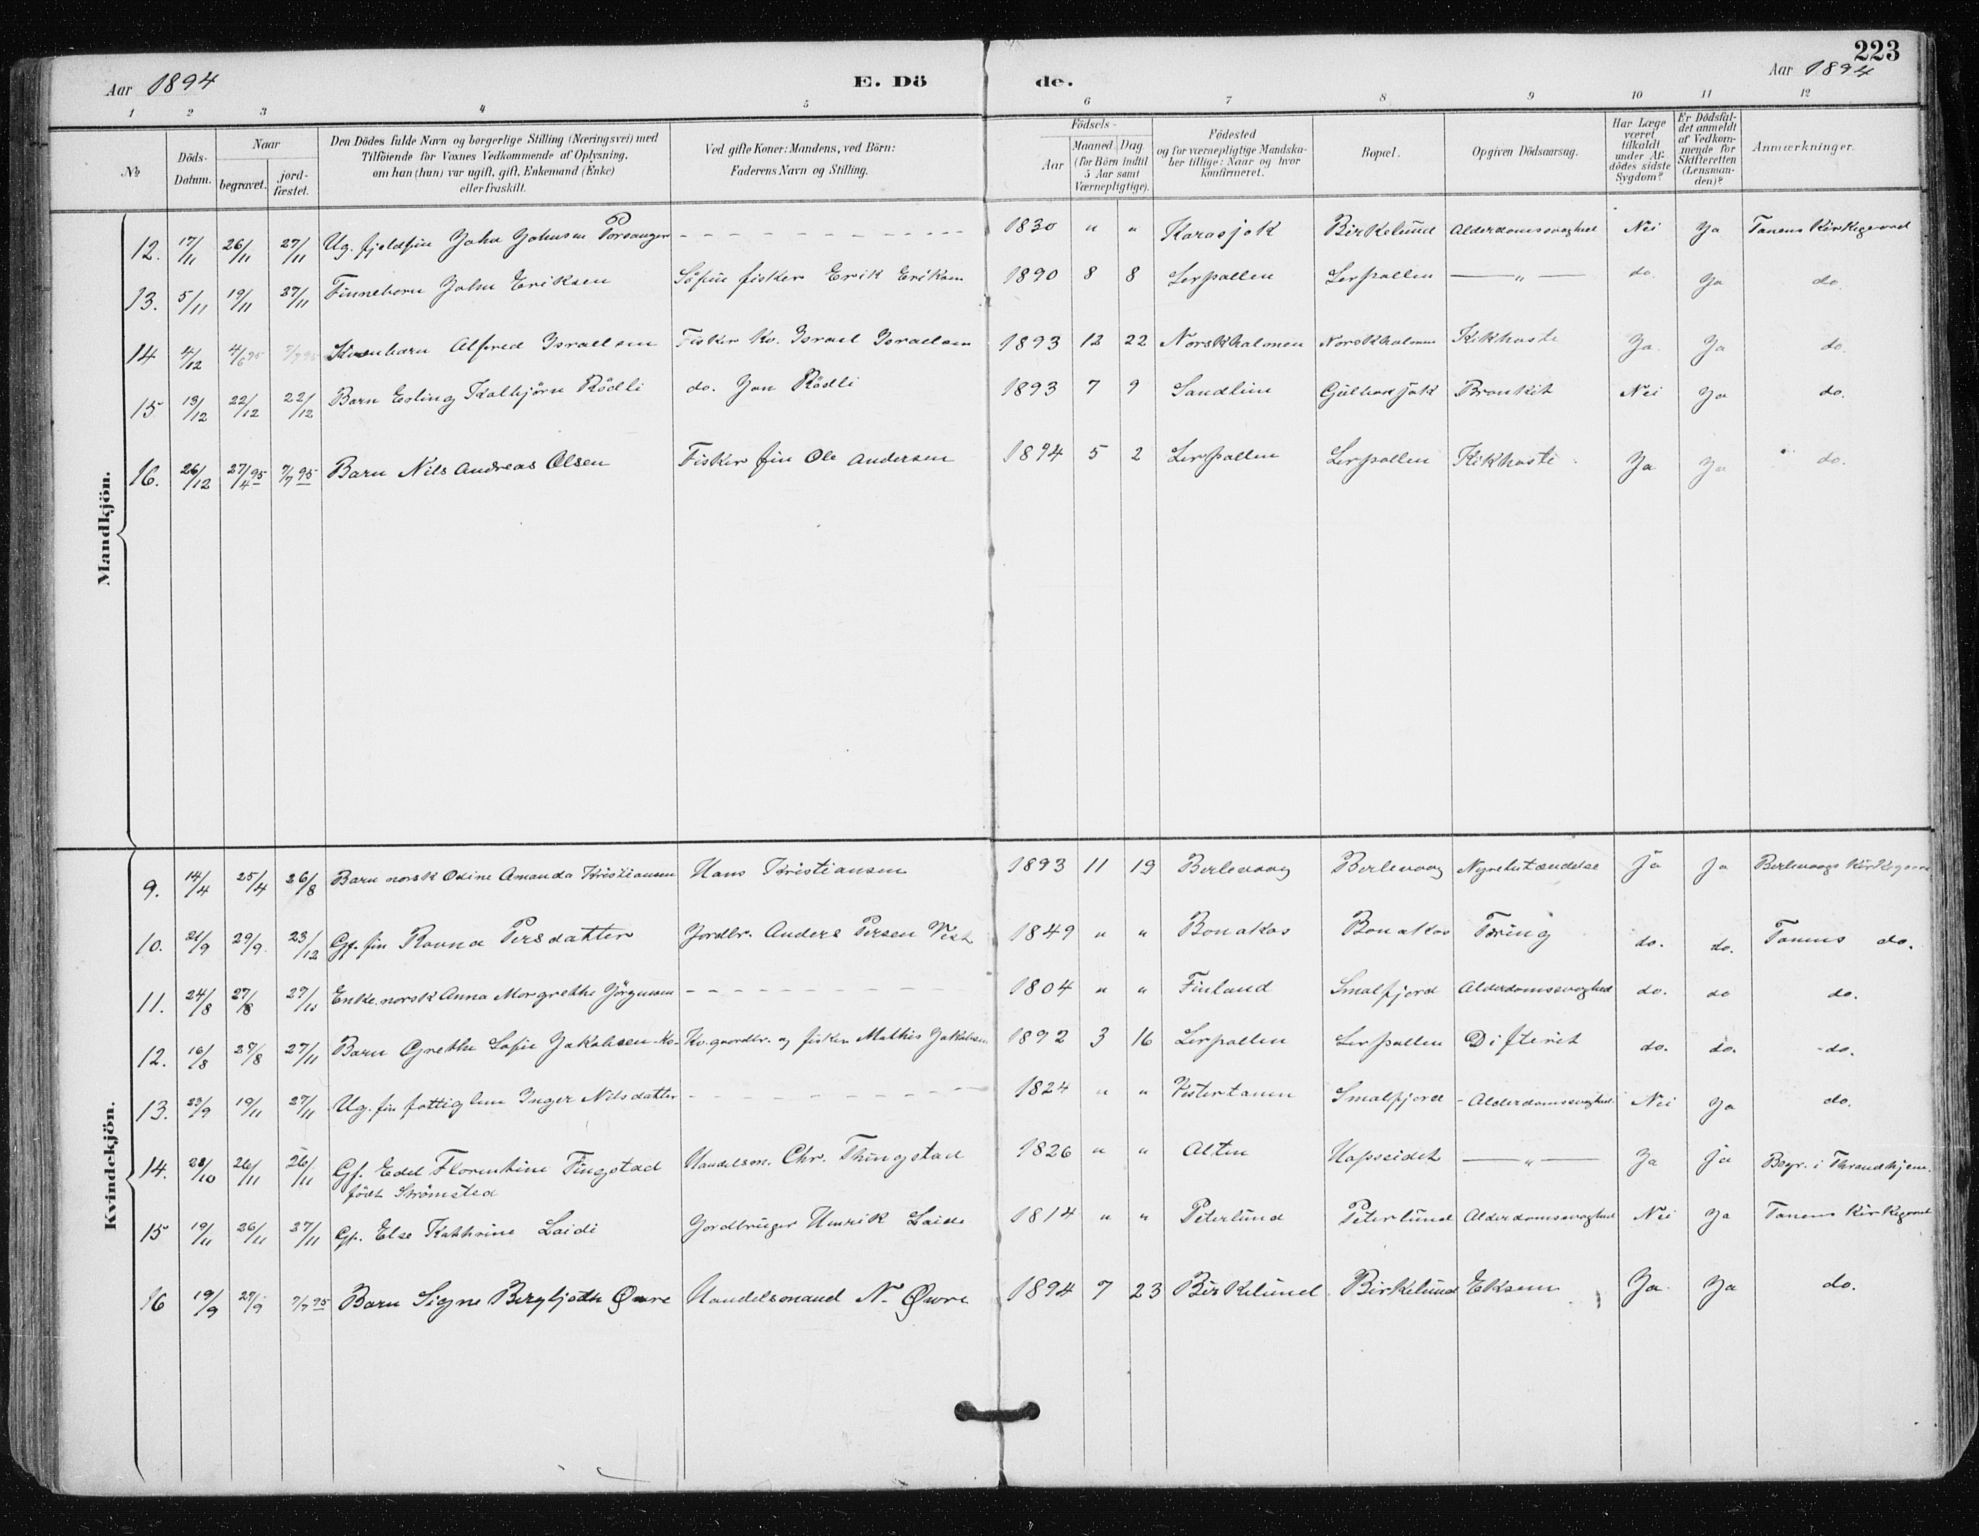 223
Aar 1894 E. Dö de. Aar 1894
1 2 3 4 5 6 7 8 9 10 11 12
№
Döds-Datum.
Naar
begravet.
jord-fæstet.
Den Dödes fulde Navn og borgerlige Stilling (Næringsvei) med
Tilföiende for Voxnes Vedkommende af Oplysning,
om han (hun) var ugift, gift, Enkemand (Enke)
eller fraskilt.
Ved gifte Koner: Mandens, ved Börn:
Faderens Navn og Stilling.
Födsels-
Aar
Maaned. Dag.
(for Börn indtil
5 Aar samt
Værnepligtige).
Födested
og for værnepligtige Mandska-
ber tillige: Naar og hvor
Konfirmeret.
Bopæl.
Opgiven Dödsaarsag.
Har Læge
været
tilkaldt
under Af-
dödes sidste
Sygdom?
Er Dödsfal-
det anmeldt
af Vedkom-
mende for
Skifteretten
(Lensman-
den)?
Anmærkninger.
Mandkjön.
12. 17/11 26/11 27/11 Ug. fjeldfin John Johnsen Porsanger - - - 1830 " " Karasjok Birkelund Alderdomssvaghed Nei Ja Tanens Kirkegaard
13. 5/11 19/11 27/11 Finnebarn John Eriksen Söfin fisker Erik Eriksen 1890 8 8 Lerpollen Lerpollen — " — do. Ja do.
14 4/12 4/6 95 Alfred Israelsen Fisker Kv. Israel Israelsen 1893 12 22 Norskholmen Norskholmen Kikhoste Ja Ja do.
15 13/12 22/12 22/12 Barn Erling Kolbjörn Rödli do. Jon Rödli 1893 7 9 Sandlien Bronkit Nei Ja do.
16. 26/12 27/4 95 7/7 95 Barn Nils Andreas Olsen Fisker fin Ole Andersen 1894 5 2 Lerpollen Lerpollen Kikhoste Ja Ja do.
Kvindekjön.
9. 14/4 25/4 26/8 Barn norsk Odine Amanda Kristiansen Hans Kristiansen 1893 11 19 Berlevaag Berlevaag Nyrebetændelse Ja Ja Berlevaags Kirkegaard
10. 21/9 29/9. 23/12 Gf. fin Ravna Persdatter Jordbr. Anders Persen Vest 1849 " " Bonakas Bonakas Tæring do. do. Tanens do.
11. 24/8 27/8 Enke norsk Anna Margrethe Jörgensen - - - 1804 " " Finland Smalfjord Alderdomssvaghed do. do do.
12. 16/8 27/8 27/11 Barn Grethe Sofie Jakobsen Kv. gaardbr. og fisker Mathis Jakobsen 1892 3 16 Lerpollen Lerpollen Difterit do. do. do.
13. 23/9 19/11 27/11 Ug. fin fattiglem Inger Nilsdatter - - - 1824 " " Vestertanen Smalfjord Alderdomssvaghed. Nei Ja do.
14. 28/10 26/11 26/11 Gf. Edel Florentine Tingstad Handelsm. Chr. Thingstad 1826 " " Alten Hopseidet — " — Ja Ja Begr. i Throndhjem.
födt Strömsted
15 19/11 26/11 27/11 Gf. Else Kathrine Laidi Jordbruger Henrik Laidi 1814 " " Peterlund Peterlund Alderdomssvaghed Nei Ja Tanens Kirkegaard
16 19/9 27/9 7/7 95 Barn Signe Bergljoth Øwre Handelsmand N. Øwre 1894 7 23 Birkelund Birkelund Eksem Ja Ja do.